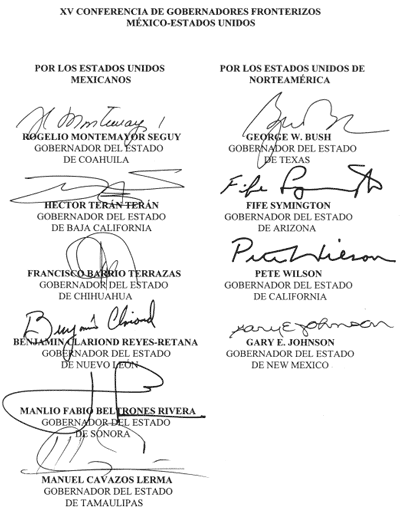 XV CONFERENCIA DE GOBERNADORES FRONTERIZOS
MÉXICO-ESTADOS UNIDOS
POR LOS ESTADOS UNIDOS
MEXICANOS
R Montemayor
ROGELIO MONTEMAYOR SEGUY
GOBERNADOR DEL ESTADO
DE COAHUILA
HECTOR TERÁN TERÁN
GOBERNADOR DEL ESTADO
DE BAJA CALIFORNIA
FRANCISCO BARRIO TERRAZAS
GOBERNADOR DEL ESTADO
DE CHIHUAHUA
Benjamín Clariond
BENJAMIN CLARIOND REYES-RETANA
GOBERNADOR DEL ESTADO
DE NUEVO LEÓN
MANLIO FABIO BELTRONES RIVERA
GOBERNADOR DEL ESTADO
DE SONORA
MANUEL CAVAZOS LERMA
GOBERNADOR DEL ESTADO
DE TAMAULIPAS
POR LOS ESTADOS UNIDOS DE
NORTEAMÉRICA
GEORGE W. BUSH
GOBERNADOR DEL ESTADO
DE TEXAS
Fife Symington
FIFE SYMINGTON
GOBERNADOR DEL ESTADO
DE ARIZONA
Pete Wilson
PETE WILSON
GOBERNADOR DEL ESTADO
DE CALIFORNIA
Gary E Johnson
GARY E. JOHNSON
GOBERNADOR DEL ESTADO
DE NEW MEXICO